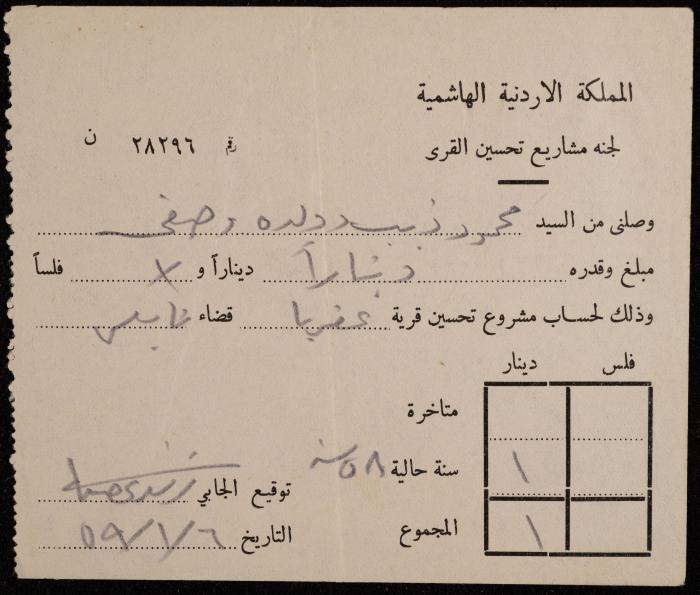 المملكة الاردنية الهاشمية
لجنه مشاريع تحسين القرى
رقم ٢٨٢٩٦ ن
وصلني من السيد محمود ذيب وولده وصفي
مبلغ وقدره ديناراً ديناراً و X فلساً
وذلك لحساب مشروع تحسين قرية عقربا قضاء نابلس
فلس دينار
متاخرة
سنة حالية ٥٨ سنه ١
توقيع الجابي
المجموع ١
التاريخ ٥٩/١/٦